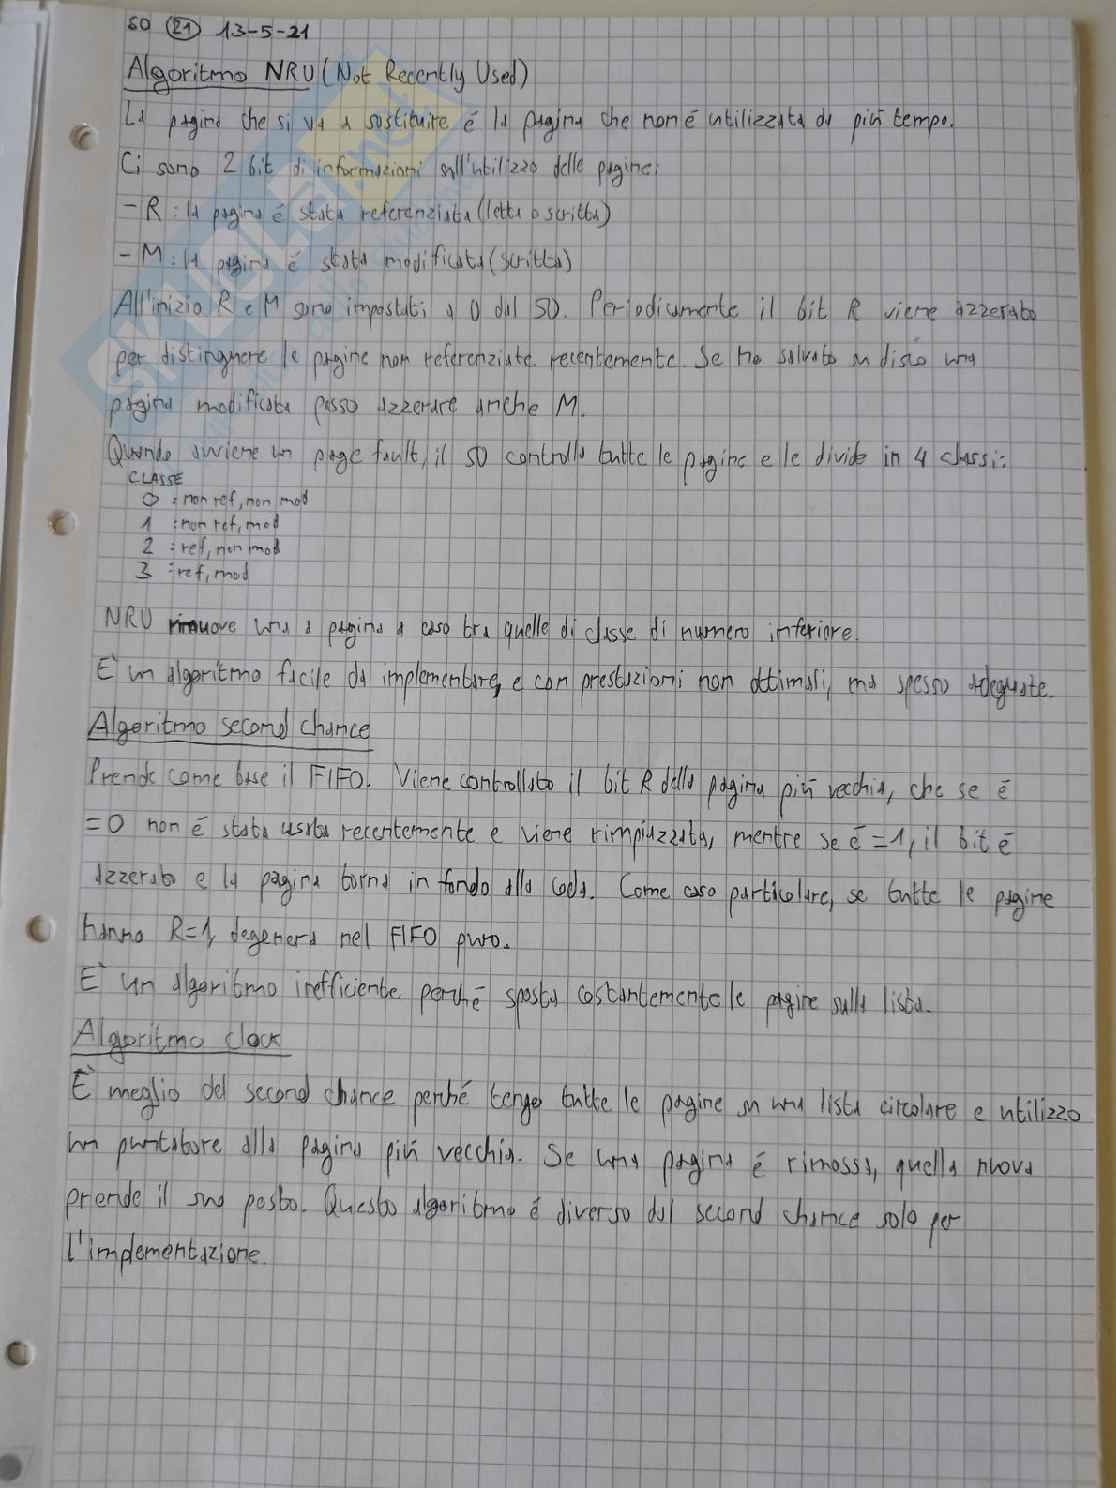 SO 21 13-5-21
Algoritmo NRU (Not Recently Used)
La pagina che si va a sostituire é la pagina che non é utilizzata da più tempo.
Ci sono 2 bit di informazioni sull'utilizzo delle pagine:
- R: la pagina é stata referenziata (letta o scritta)
- M: la pagina é stata modificata (scritta)
All'inizio R e M sono impostati a 0 dal SO. Periodicamente il bit R viene azzerato
per distinguere le pagine non referenziate recentemente. Se ho salvato su disco una
pagina modificata posso azzerare anche M.
Quando avviene un page fault, il SO controlla tutte le pagine e le divide in 4 classi:
CLASSE
0 : non ref, non mod
1 : non ref, mod
2 : ref, non mod
3 : ref, mod
NRU rimuove una a pagina a caso tra quelle di classe di numero inferiore.
E' un algoritmo facile da implementare, e con prestazioni non ottimali, ma spesso adeguate.
Algoritmo second chance
Prende come base il FIFO. Viene controllato il bit R della pagina più vecchia, che se é
=0 non é stata usata recentemente e viene rimpiazzata, mentre se é =1, il bit é
azzerato e la pagina torna in fondo alla coda. Come caso particolare, se tutte le pagine
hanno R=1, degenera nel FIFO puro.
E' un algoritmo inefficiente perché sposta costantemente le pagine sulla lista.
Algoritmo clock
E' meglio del second chance perché tengo tutte le pagine su una lista circolare e utilizzo
un puntatore alla pagina più vecchia. Se una pagina é rimossa, quella nuova
prende il suo posto. Questo algoritmo é diverso dal second chance solo per
l'implementazione.
SKUOLA.net